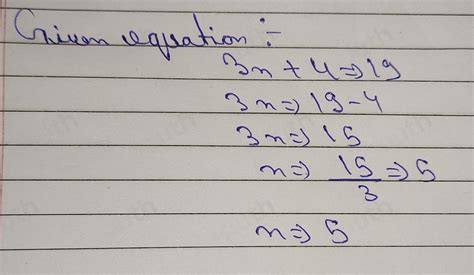 Given equation :-
3n + 4 => 19
3n => 19 - 4
3n => 15
n => 15/3 => 5
n => 5